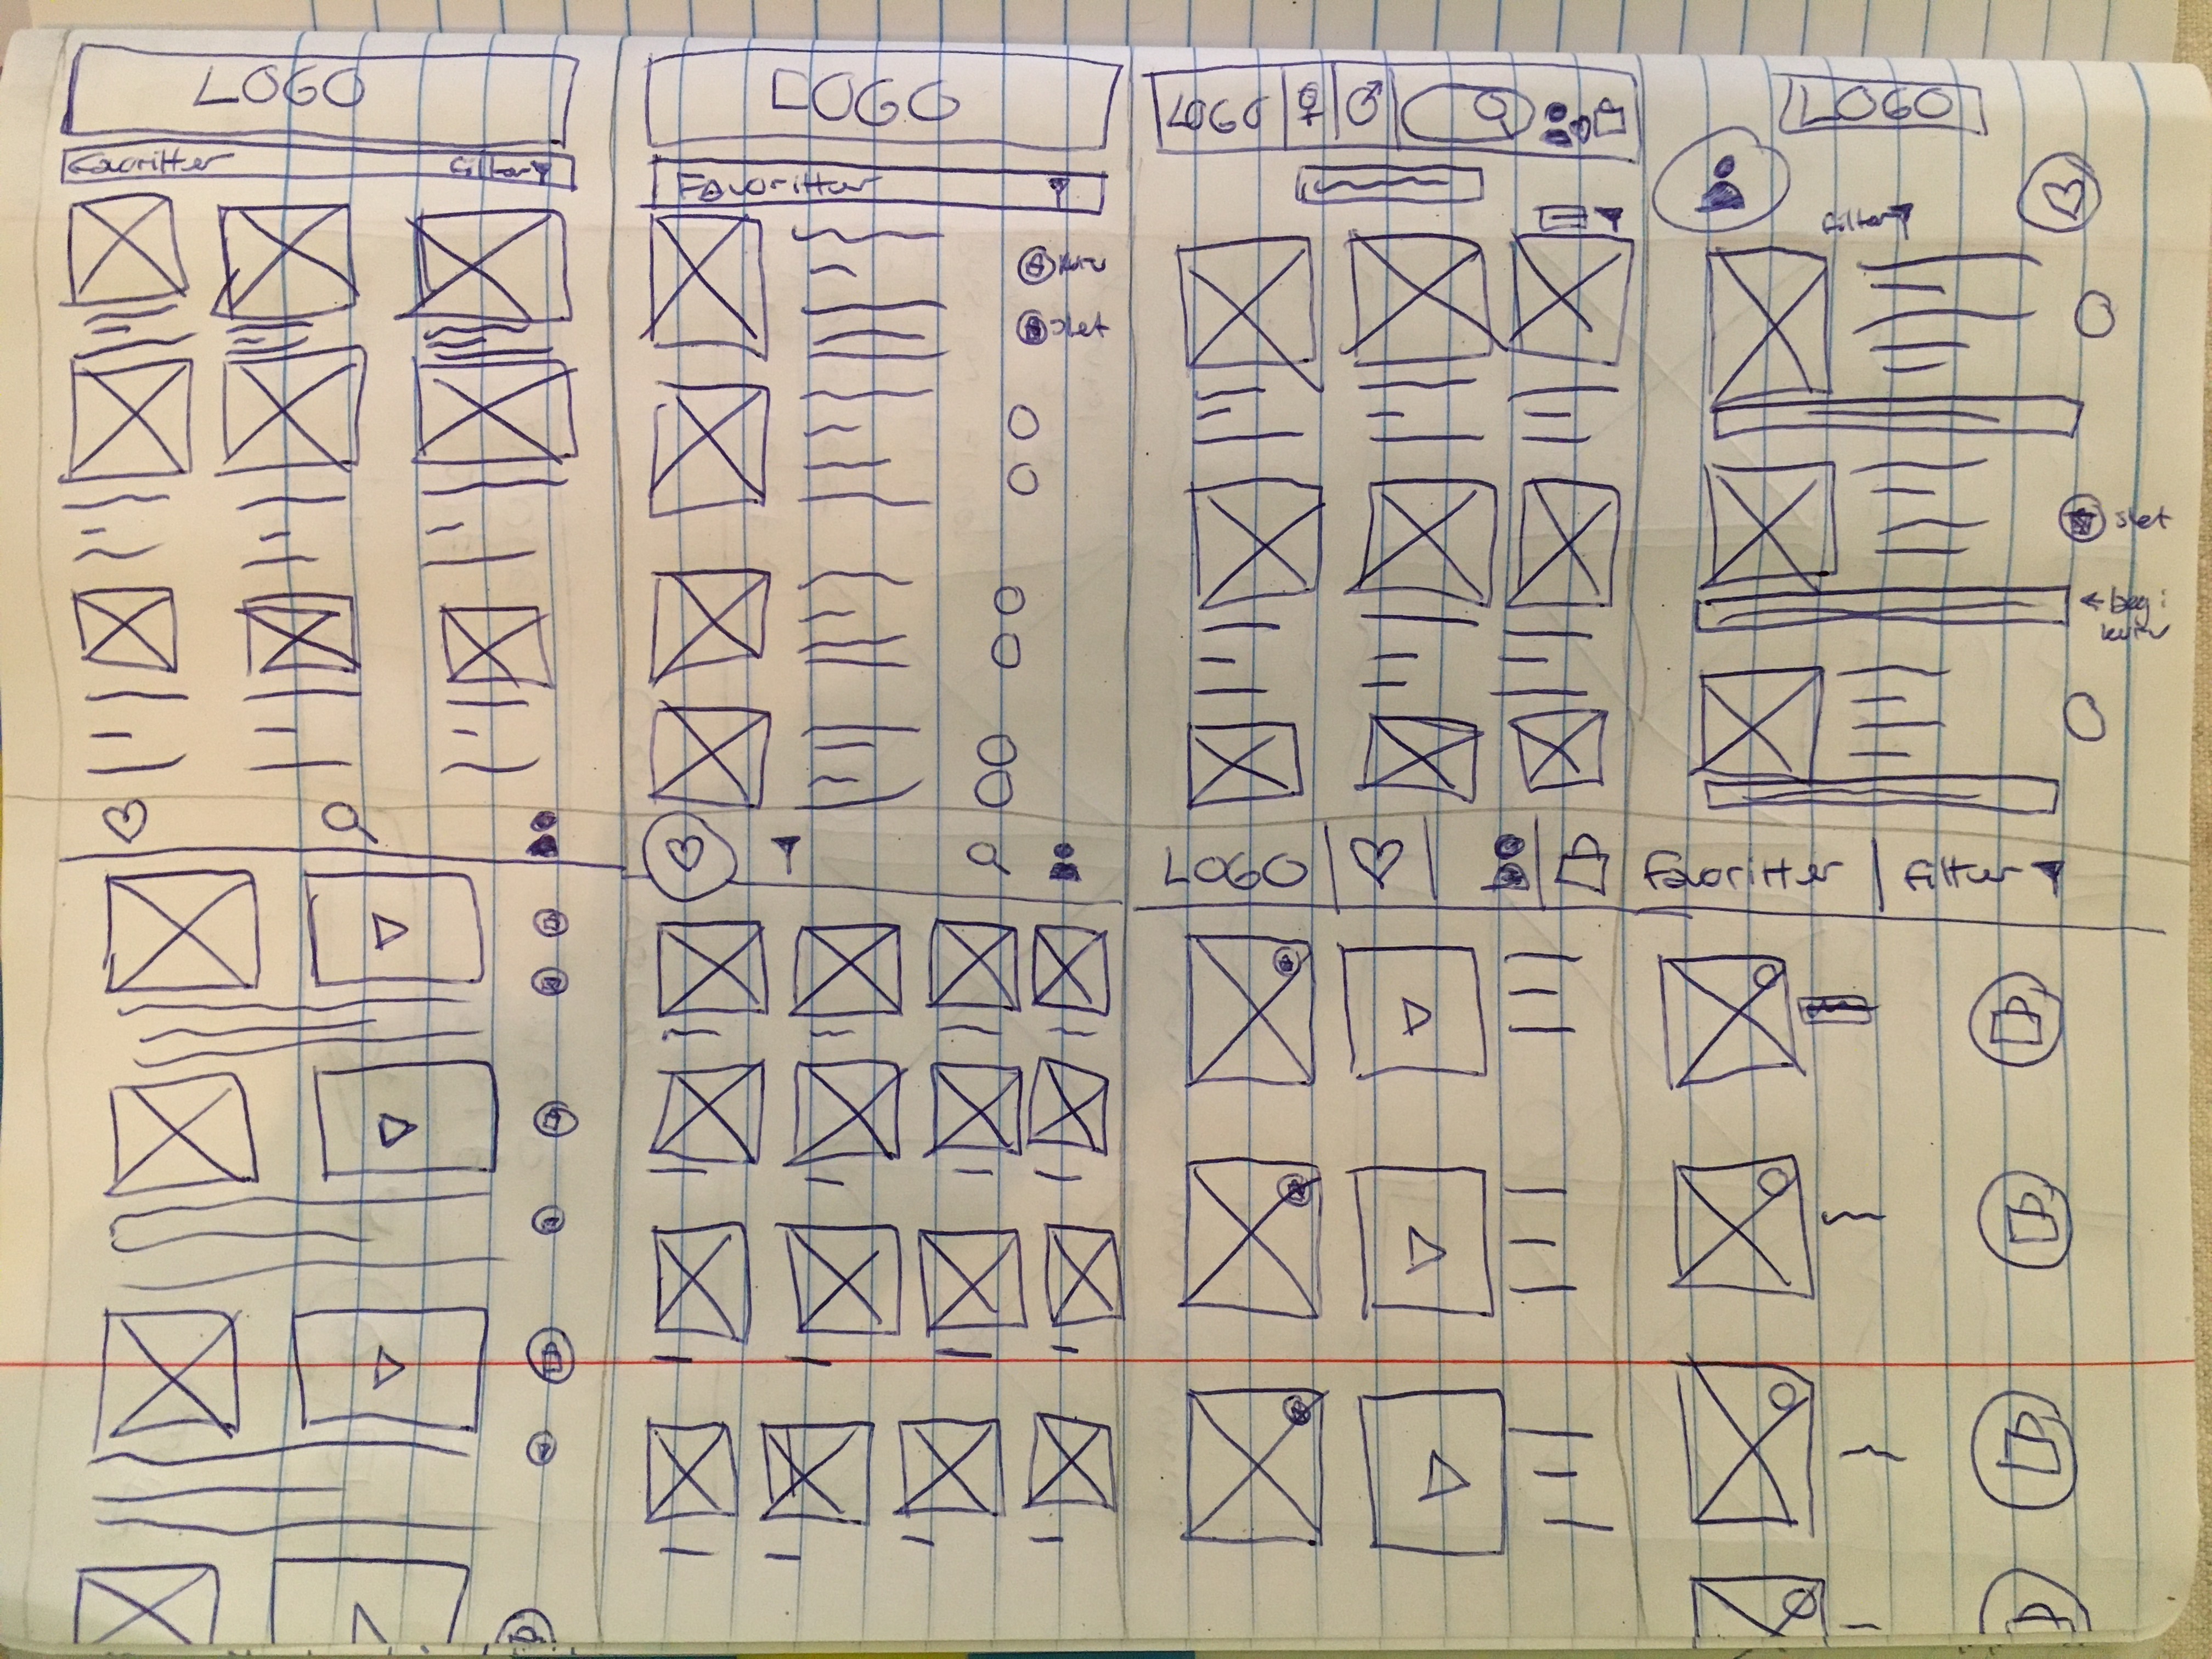 LOGO
favoritter
filter
LOGO
Favoritter
kurv
slet
LOGO
LOGO
filter
slet
← læg i
kurv
LOGO
Favoritter
filter